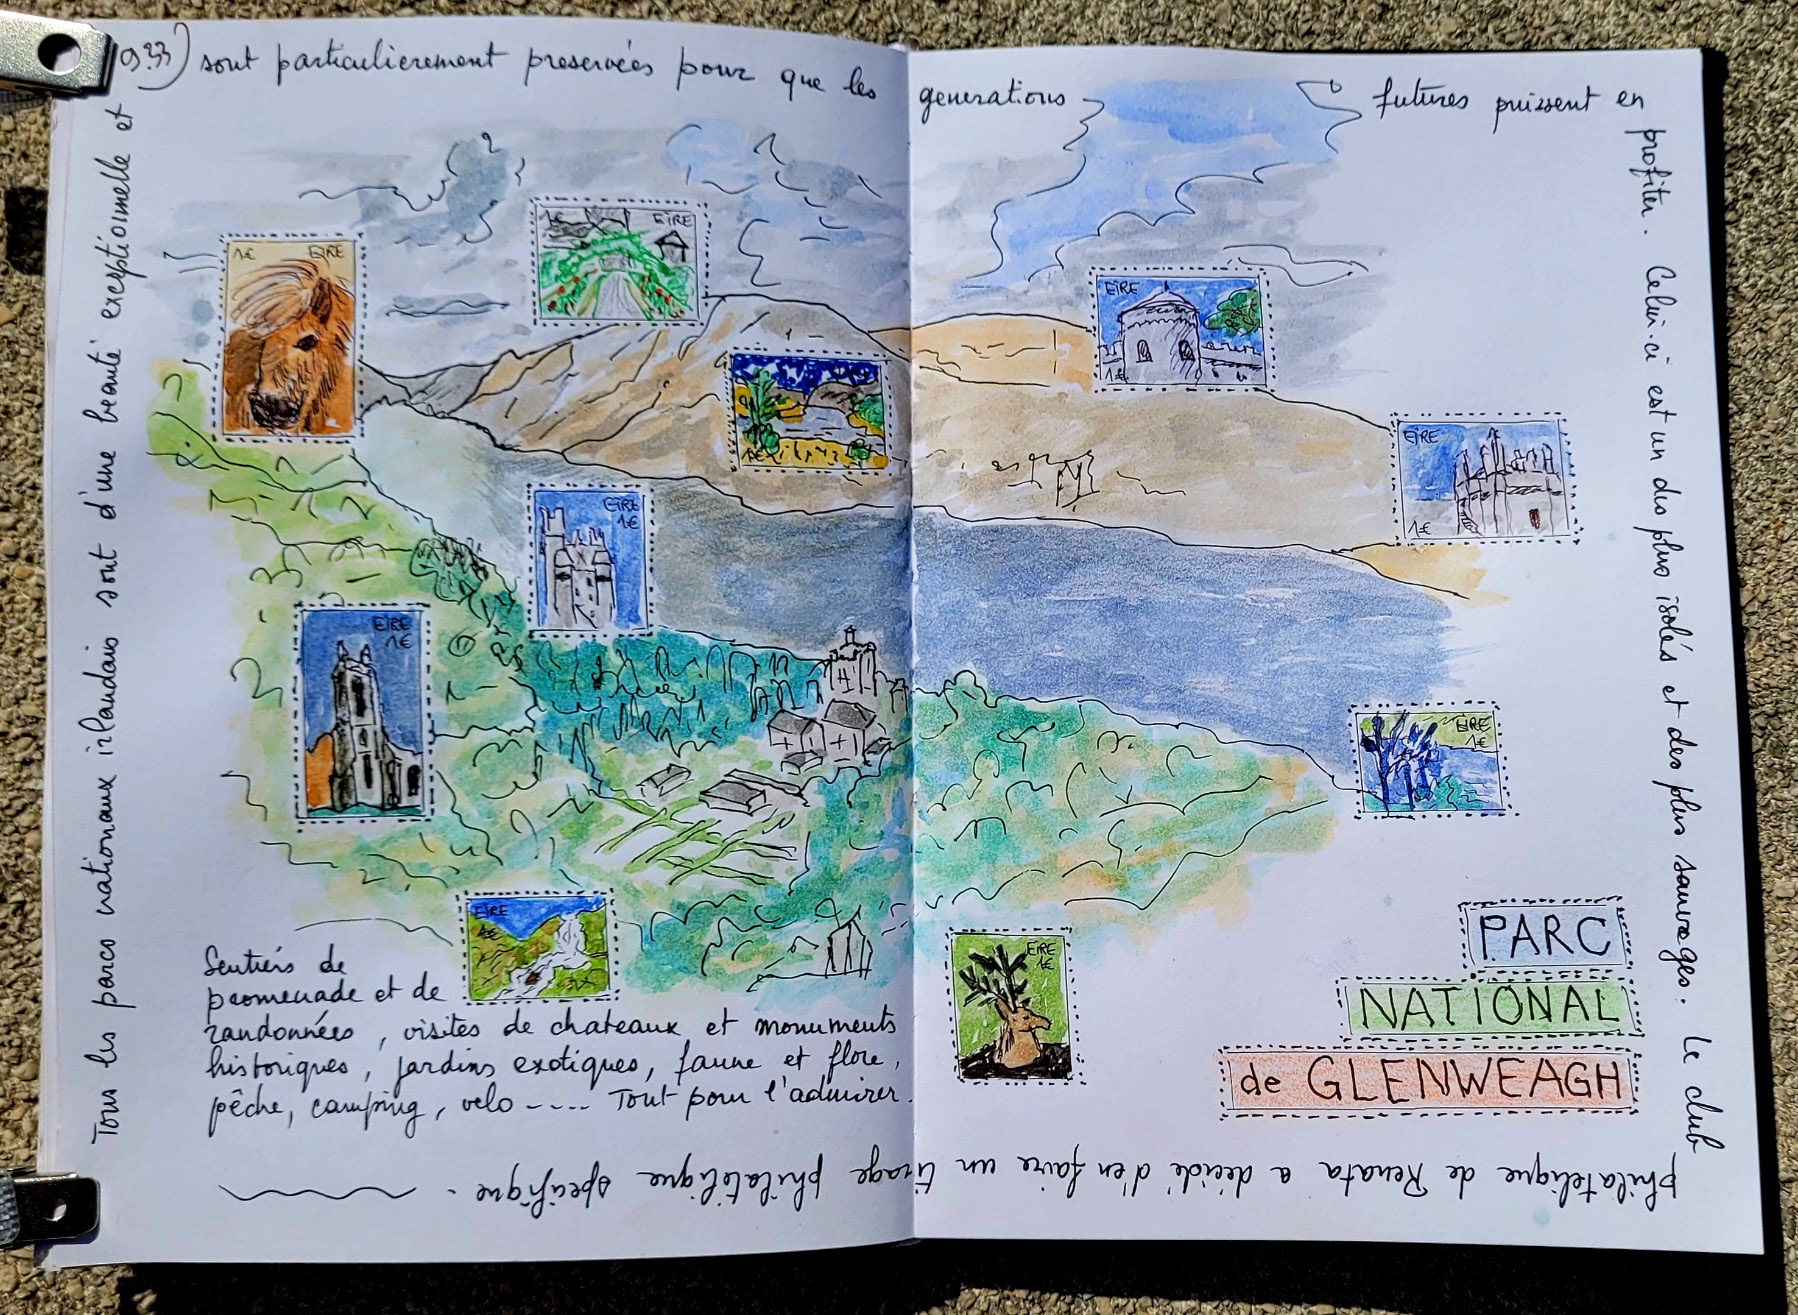 933)
Tous les parcs nationaux irlandais sont d'une beauté exceptionnelle et
sont particulierement preservées pour que les generations futures puissent en
profiter. Celui-ci est un des plus isolés et des plus sauvages. Le club
philatelique de Renata a décidé d'en faire un tirage philatélique spécifique.
1€ EIRE
1€ EIRE
EIRE
1€
1€
EIRE
1€
EIRE
1€
EIRE
1€
EIRE
1€
EIRE
1€
EIRE
1€
Sentiers de
promenade et de
randonnées, visites de chateaux et monuments
historiques, jardins exotiques, faune et flore,
pêche, camping, velo ---- Tout pour l'admirer.
PARC
NATIONAL
de GLENWEAGH